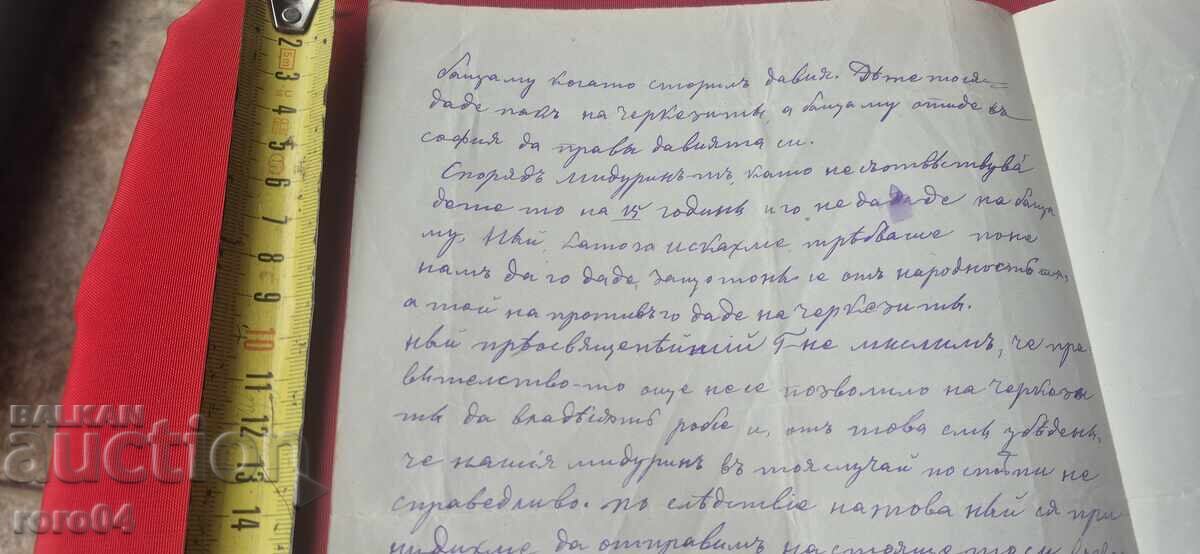 бащаму когато сторилъ давия. Дѣте тося
даде пакъ на черкезиты, а бащаму отиде въ
София да прави давията си.
Споредъ мидуринъ-тъ, като не съотвѣтствува
дете то на 15 години и го не дададе на баща
му, ный, като га искахме, трѣбваше поне
намъ да го даде, защото ный е отъ народность
а той на противъ го даде на черкезиты.
Ный прѣосвященѣйшій Г-не мыслимъ, че пра
вителство-то още не се позволило на черкезы
ты да владѣятъ робіе и, отъ това сми убѣдени,
че нашія мидуринъ въ тоя случай постѫпи не
справедливо. въ слѣдствіе на това ный ся при
нудихме да отправимъ настоящето си
2
3
4
5
6
7
8
9
10
11
12
13
14
5m
BALKAN
auction
roro04